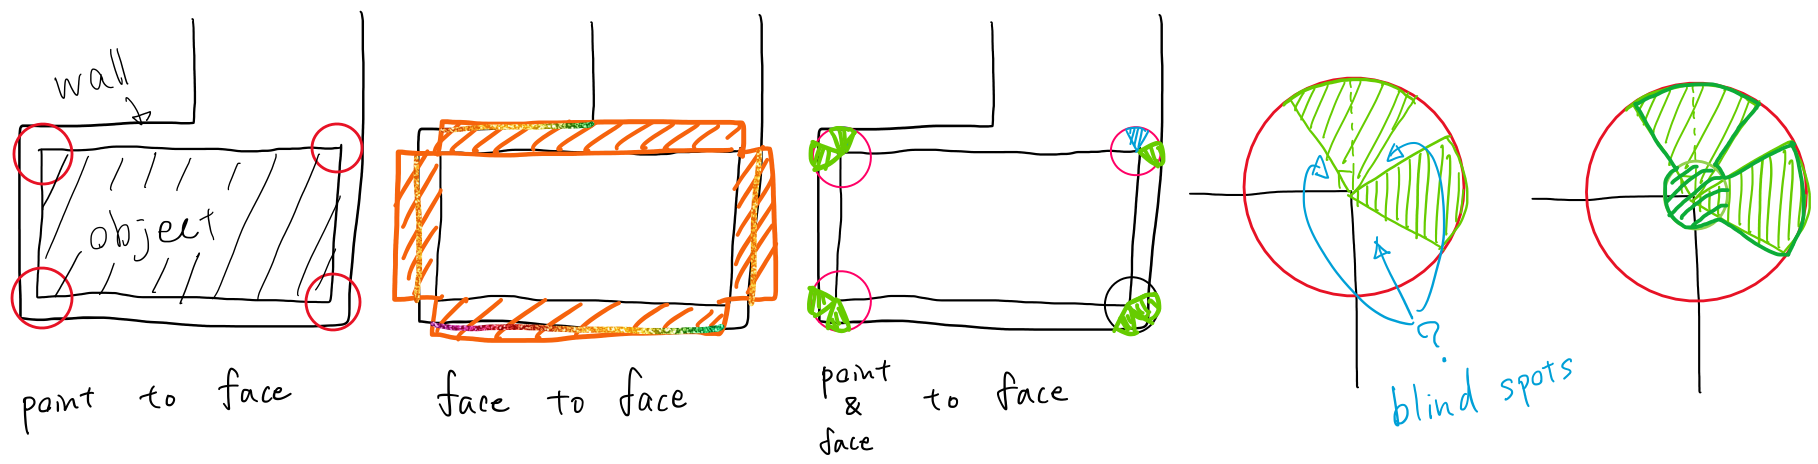 wall
object
point to face
face to face
point
& to face
face
?
blind spots